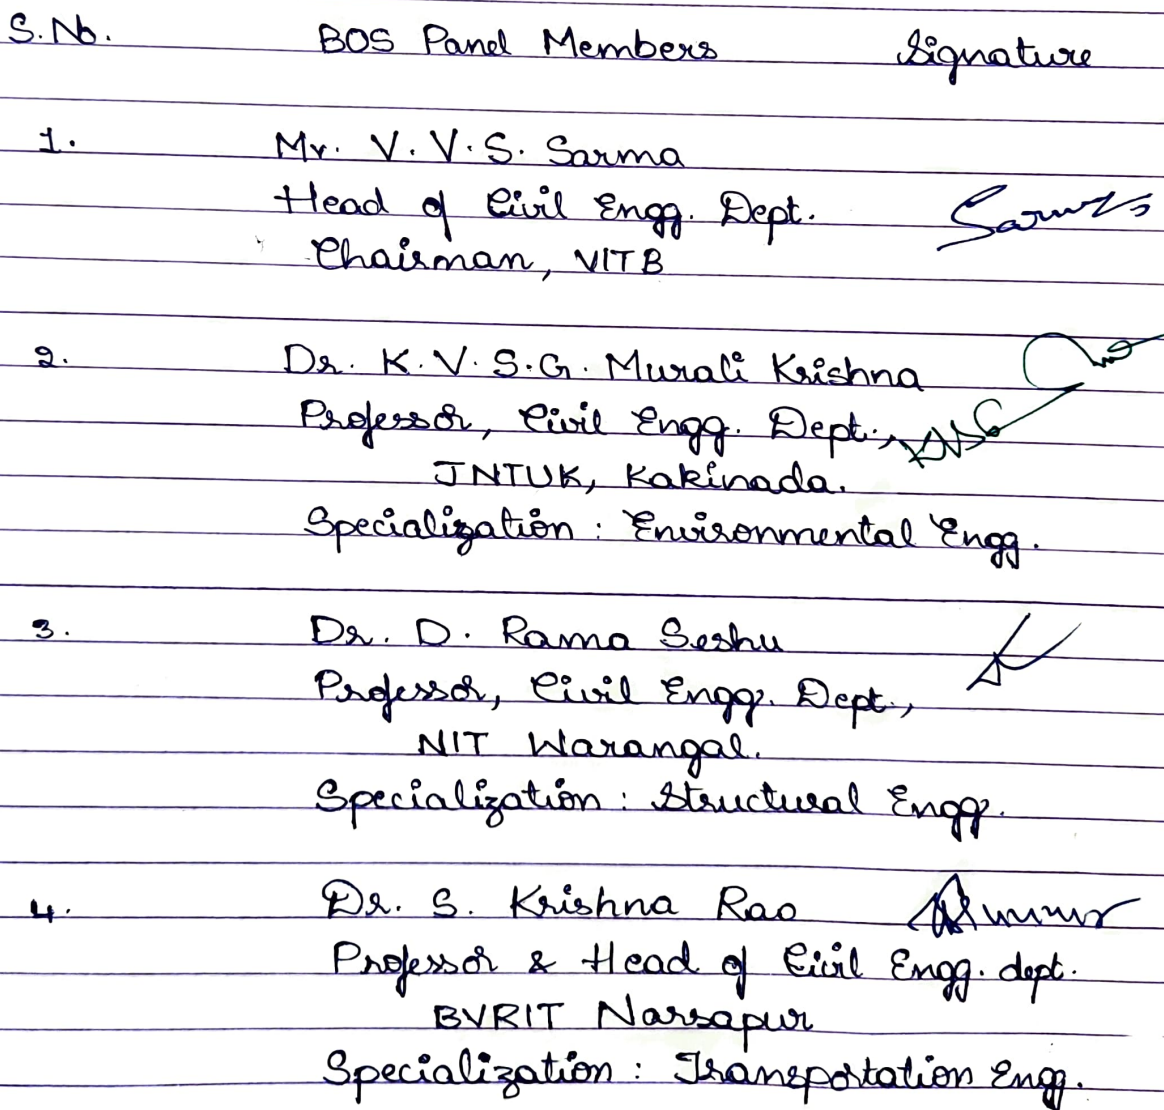 S.No. BOS Panel Members Signature
1. Mr. V.V.S. Sarma
Head of Civil Engg. Dept.
Chairman, VITB
2. Dr. K.V.S.G. Murali Krishna
Professor, Civil Engg. Dept.,
JNTUK, Kakinada.
Specialization : Environmental Engg.
3. Dr. D. Rama Seshu
Professor, Civil Engg. Dept.,
NIT Warangal.
Specialization : Structural Engg.
4. Dr. S. Krishna Rao
Professor & Head of Civil Engg. dept.
BVRIT Narsapur
Specialization : Transportation Engg.